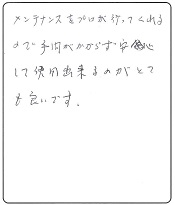 メンテナンスをプロが行ってくれる
ので手間がかからず安心
して使用出来るのがとて
も良いです。